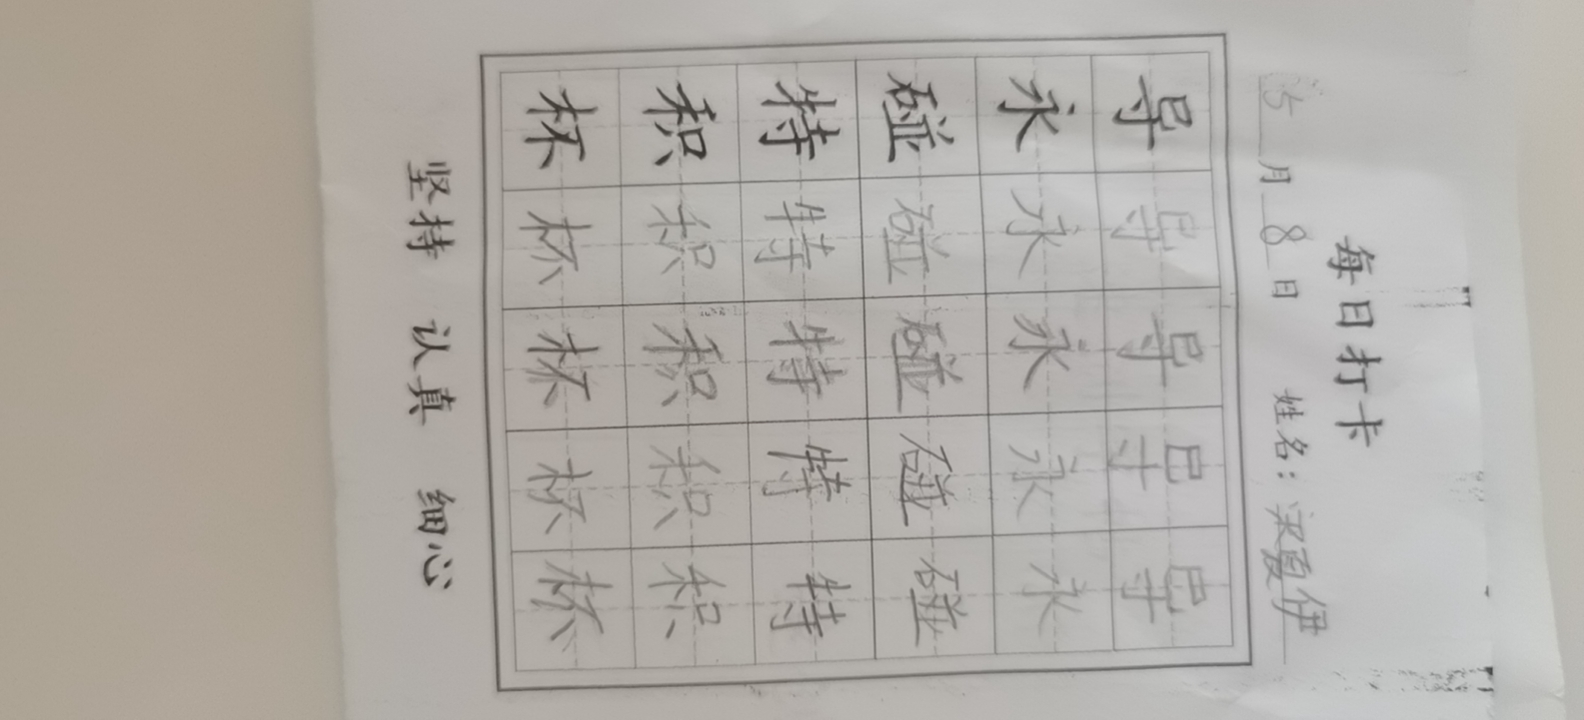 每日打卡
月 8 日 姓名:梁夏伊
导导导导导
永永永永永
碰碰碰碰碰
特特特特特
积积积积积
杯杯杯杯杯
坚持 认真 细心